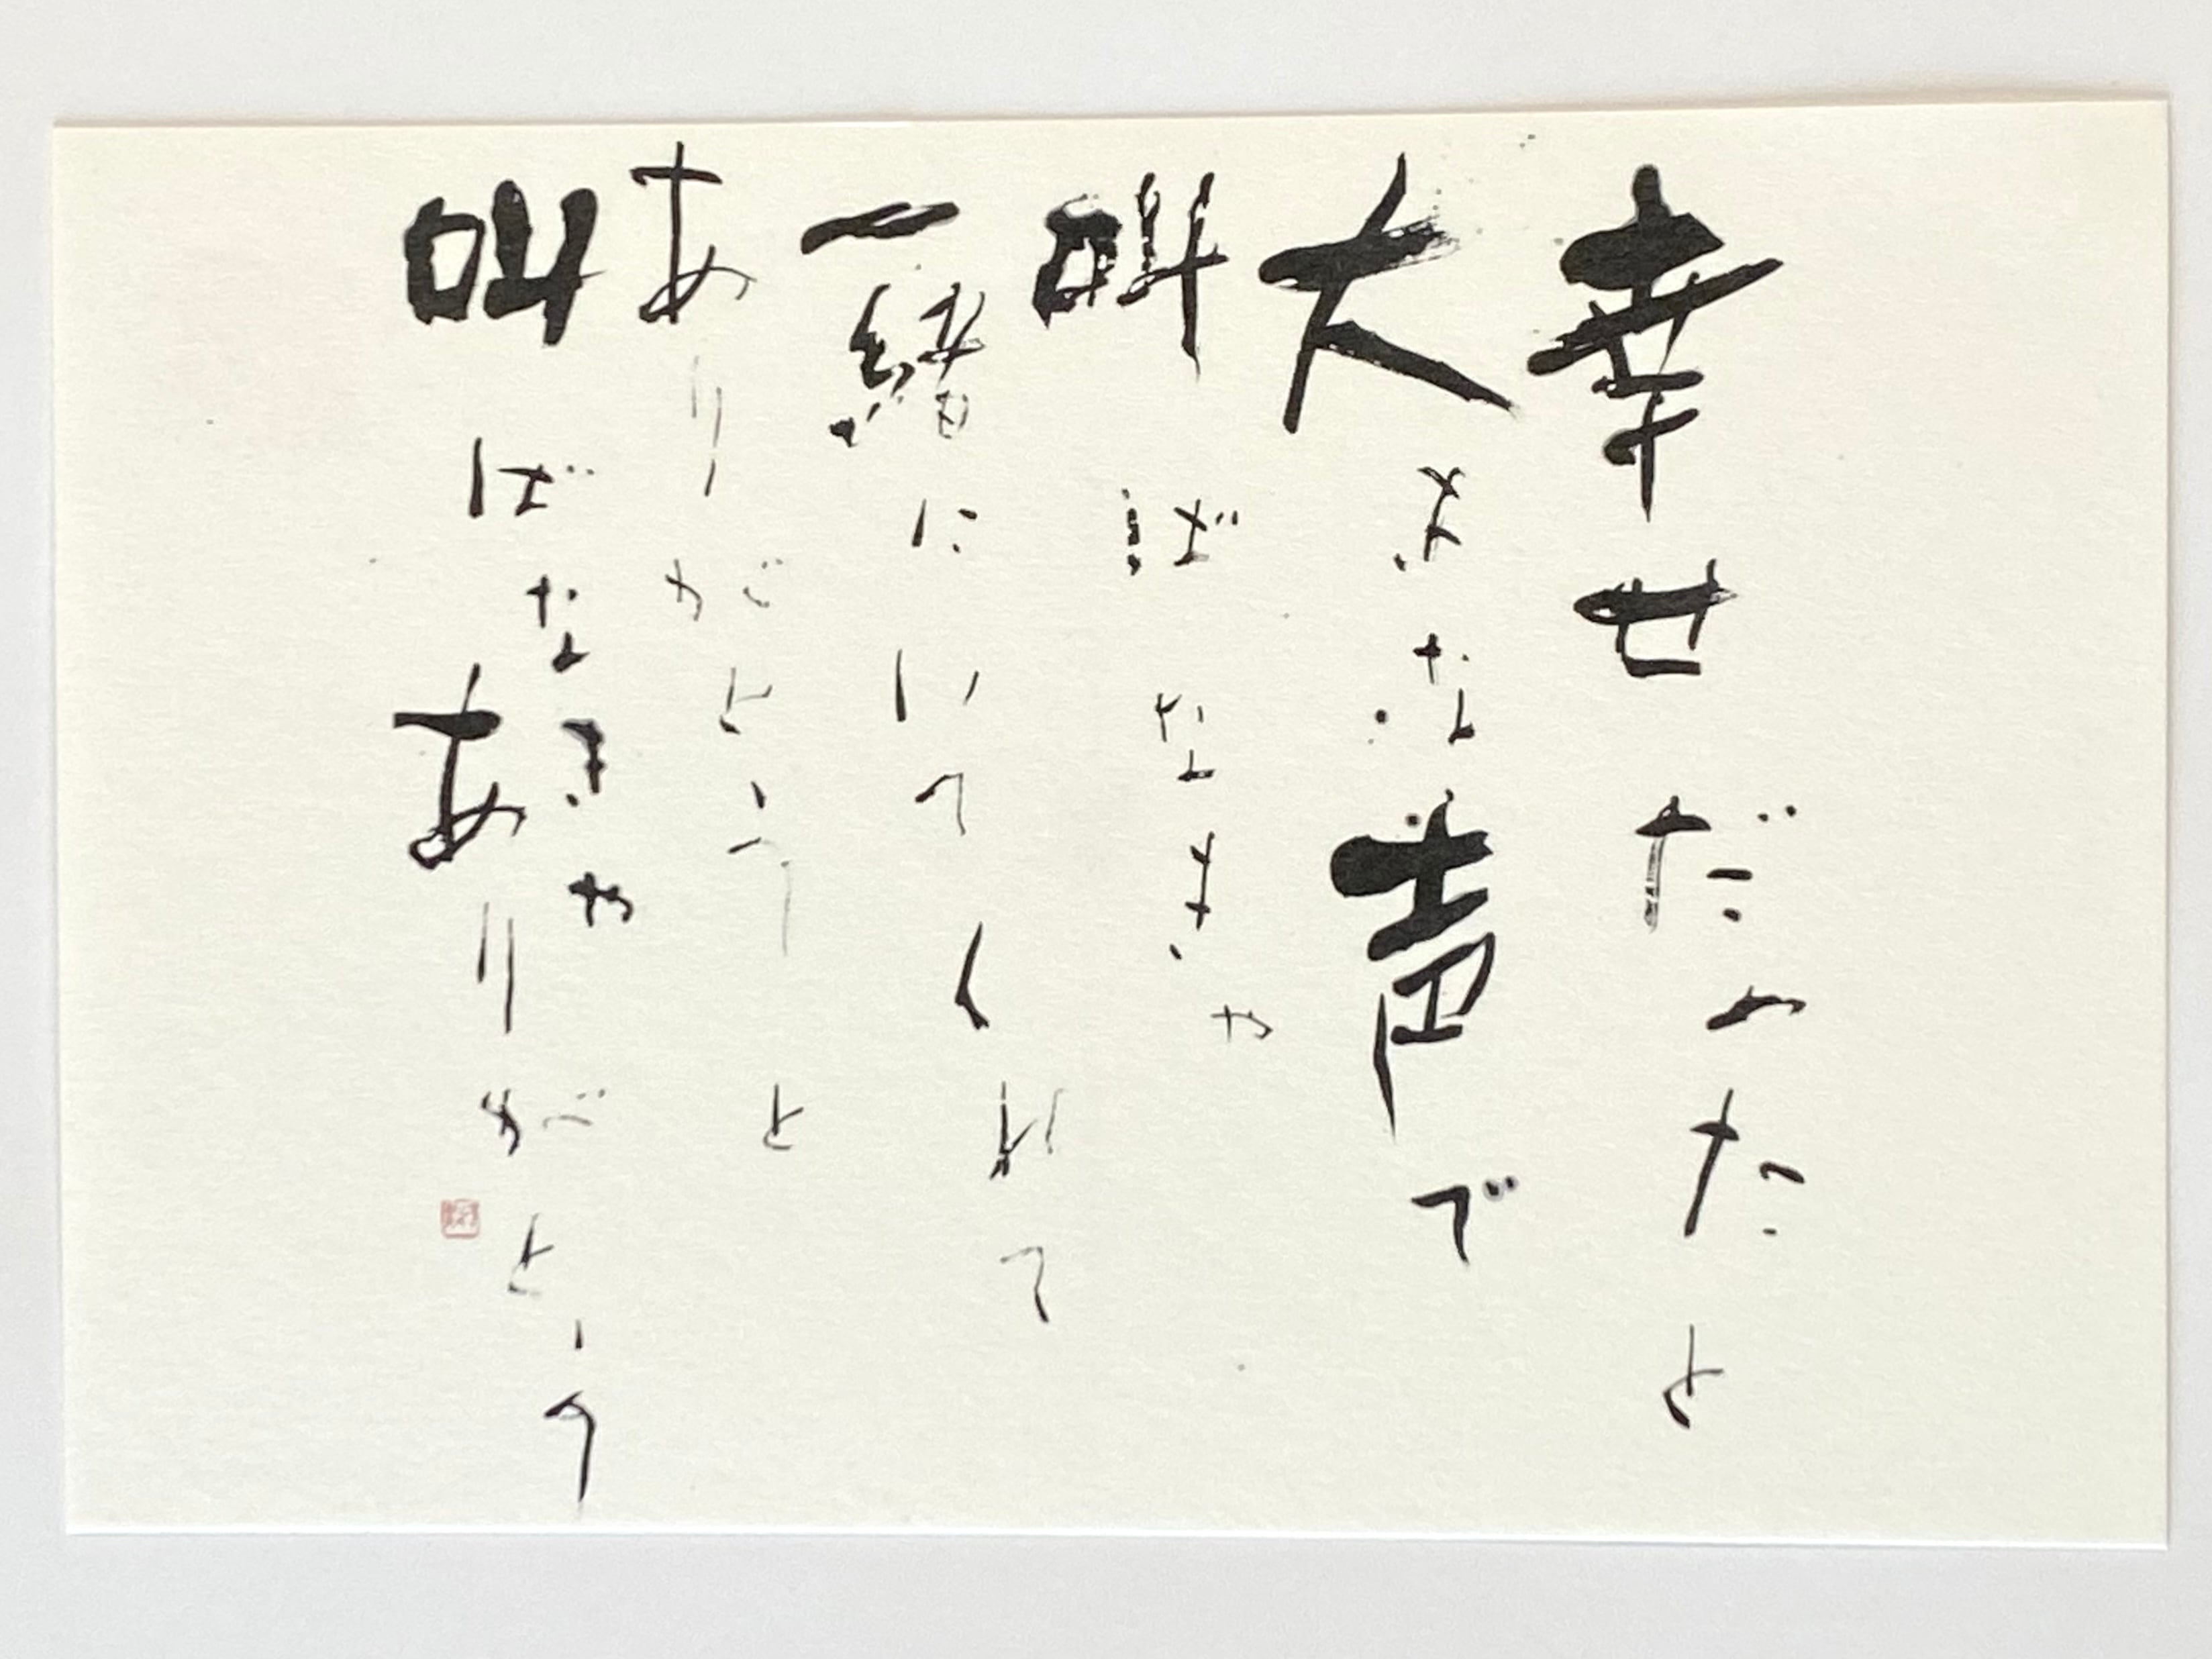 幸せだったと
大きな声で
叫ばなきゃ
一緒にいてくれて
ありがとうと
叫ばなきゃ
ありがとう